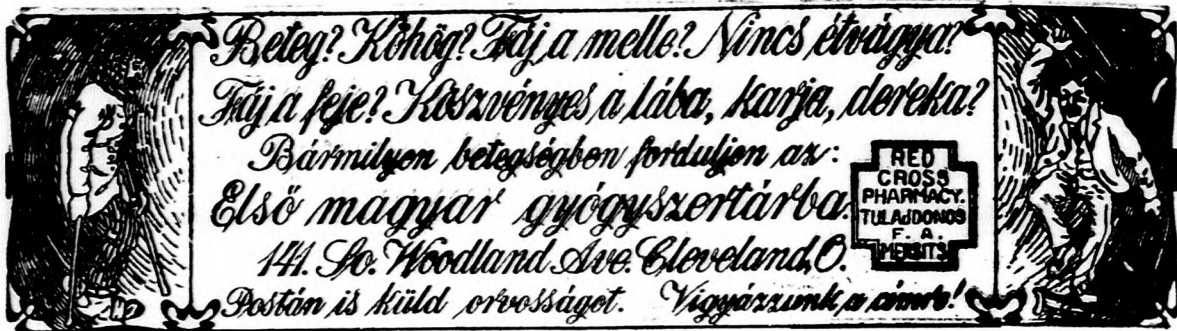 Beteg? Köhög? Fáj a melle? Nincs étvágya?
Fáj a feje? Köszvényes a lába, karja, dereka?
Bármilyen betegségben forduljon az:
Első magyar gyógyszertárba.
141. So. Woodland Ave. Cleveland, O.
Postán is küld orvosságot. Vigyázzunk a címre!
RED
CROSS
PHARMACY.
TULAJDONOS
F. A.